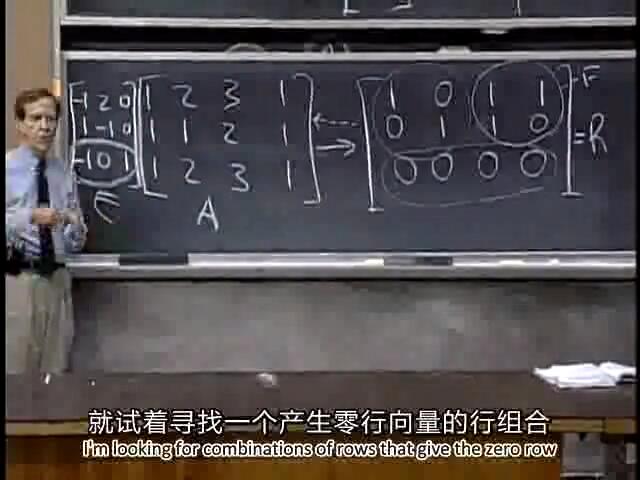 -1 2 0 1 2 3 1 1 0 1 1 F
1 -1 0 1 1 2 1 0 1 1 0 = R
-1 0 1 1 2 3 1 0 0 0 0
E A
就试着寻找一个产生零行向量的行组合
I'm looking for combinations of rows that give the zero row